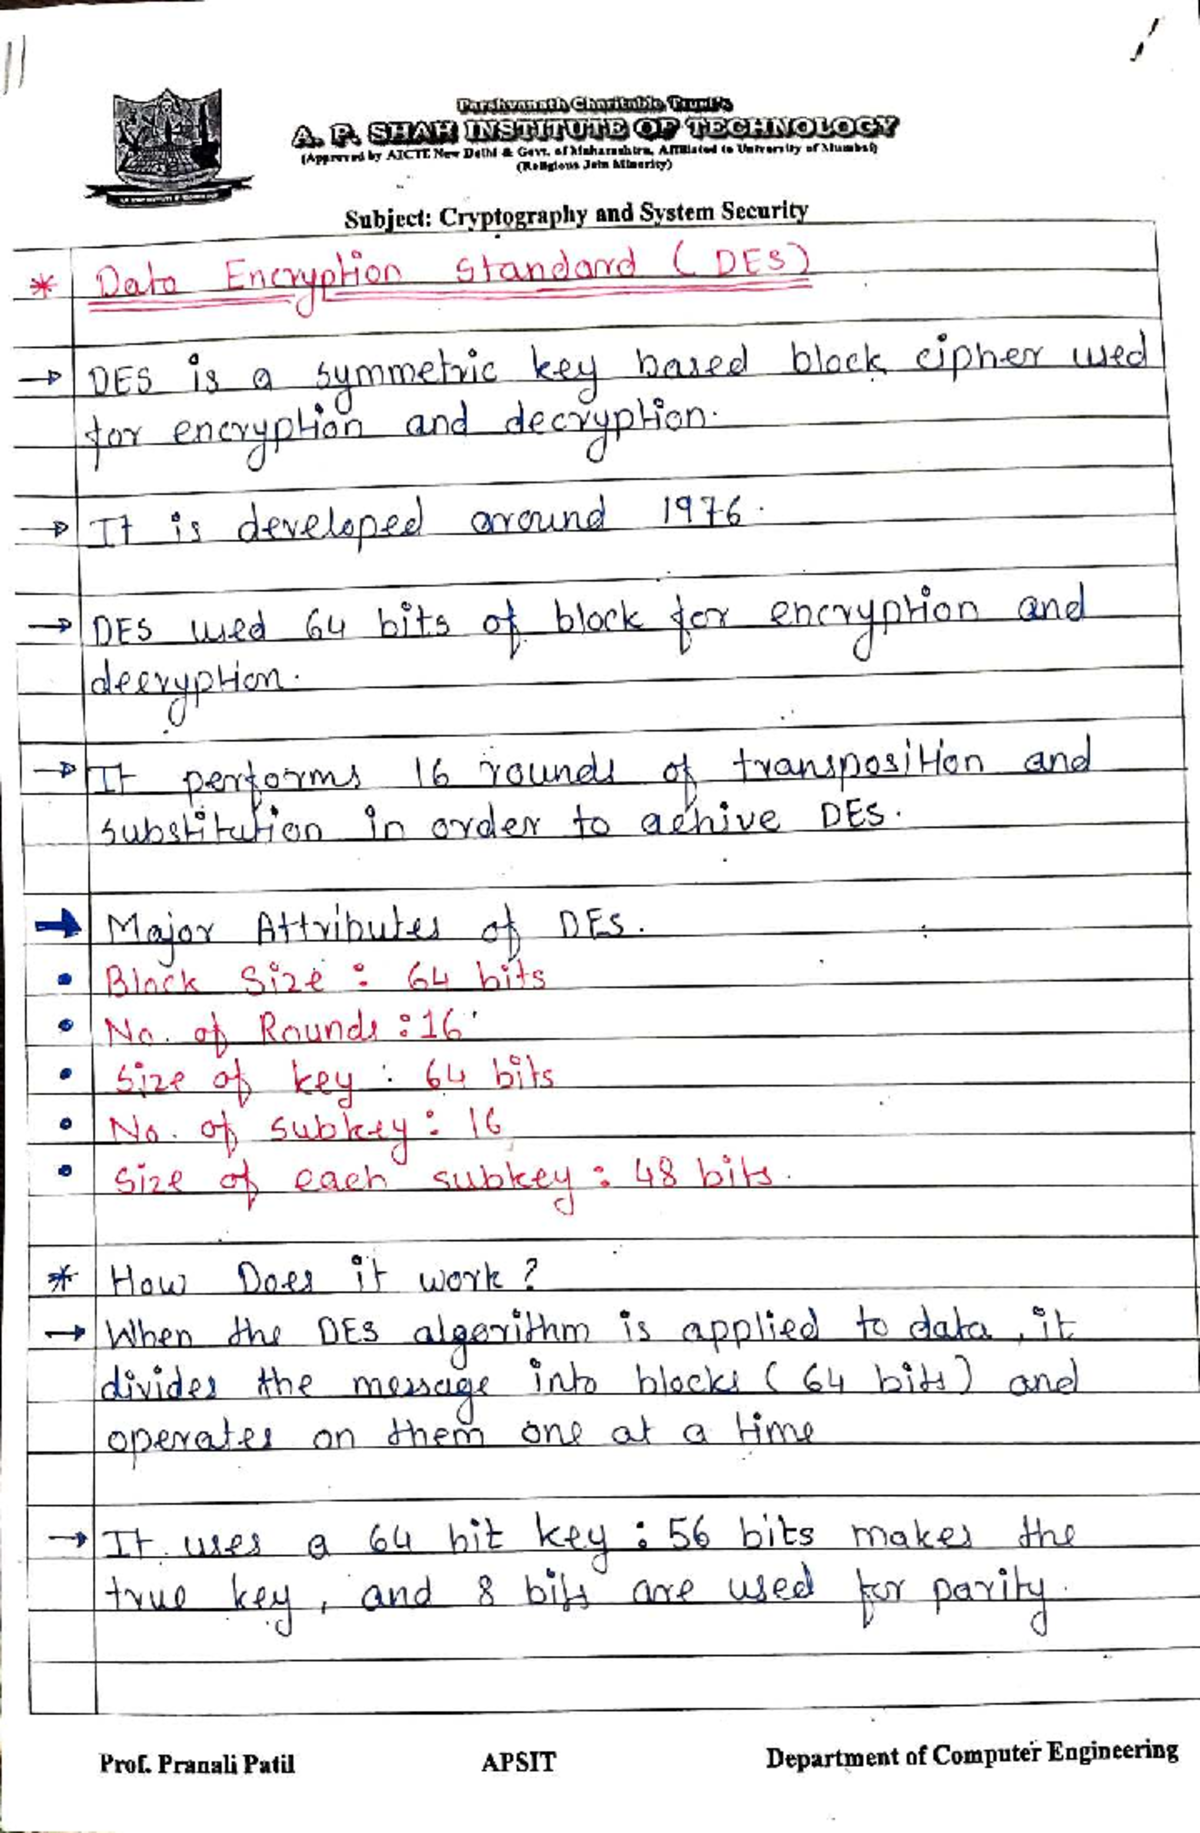 Parshvanath Charitable Trust's
A. P. SHAH INSTITUTE OF TECHNOLOGY
(Approved by AICTE New Delhi & Govt. of Maharashtra, Affiliated to University of Mumbai)
(Religious Jain Minority)
Subject: Cryptography and System Security
* Data Encryption Standard (DES)
→ DES is a symmetric key based block cipher used
for encryption and decryption.
→ It is developed around 1976.
→ DES used 64 bits of block for encryption and
decryption.
→ It performs 16 rounds of transposition and
substitution in order to achive DES.
→ Major Attributes of DES.
• Block Size : 64 bits
• No. of Rounds : 16
• Size of key : 64 bits
• No. of subkey : 16
• Size of each subkey : 48 bits.
* How Does it work?
→ When the DES algorithm is applied to data, it
divides the message into blocks (64 bits) and
operates on them one at a time
→ It uses a 64 bit key : 56 bits makes the
true key, and 8 bits are used for parity.
Prof. Pranali Patil APSIT Department of Computer Engineering